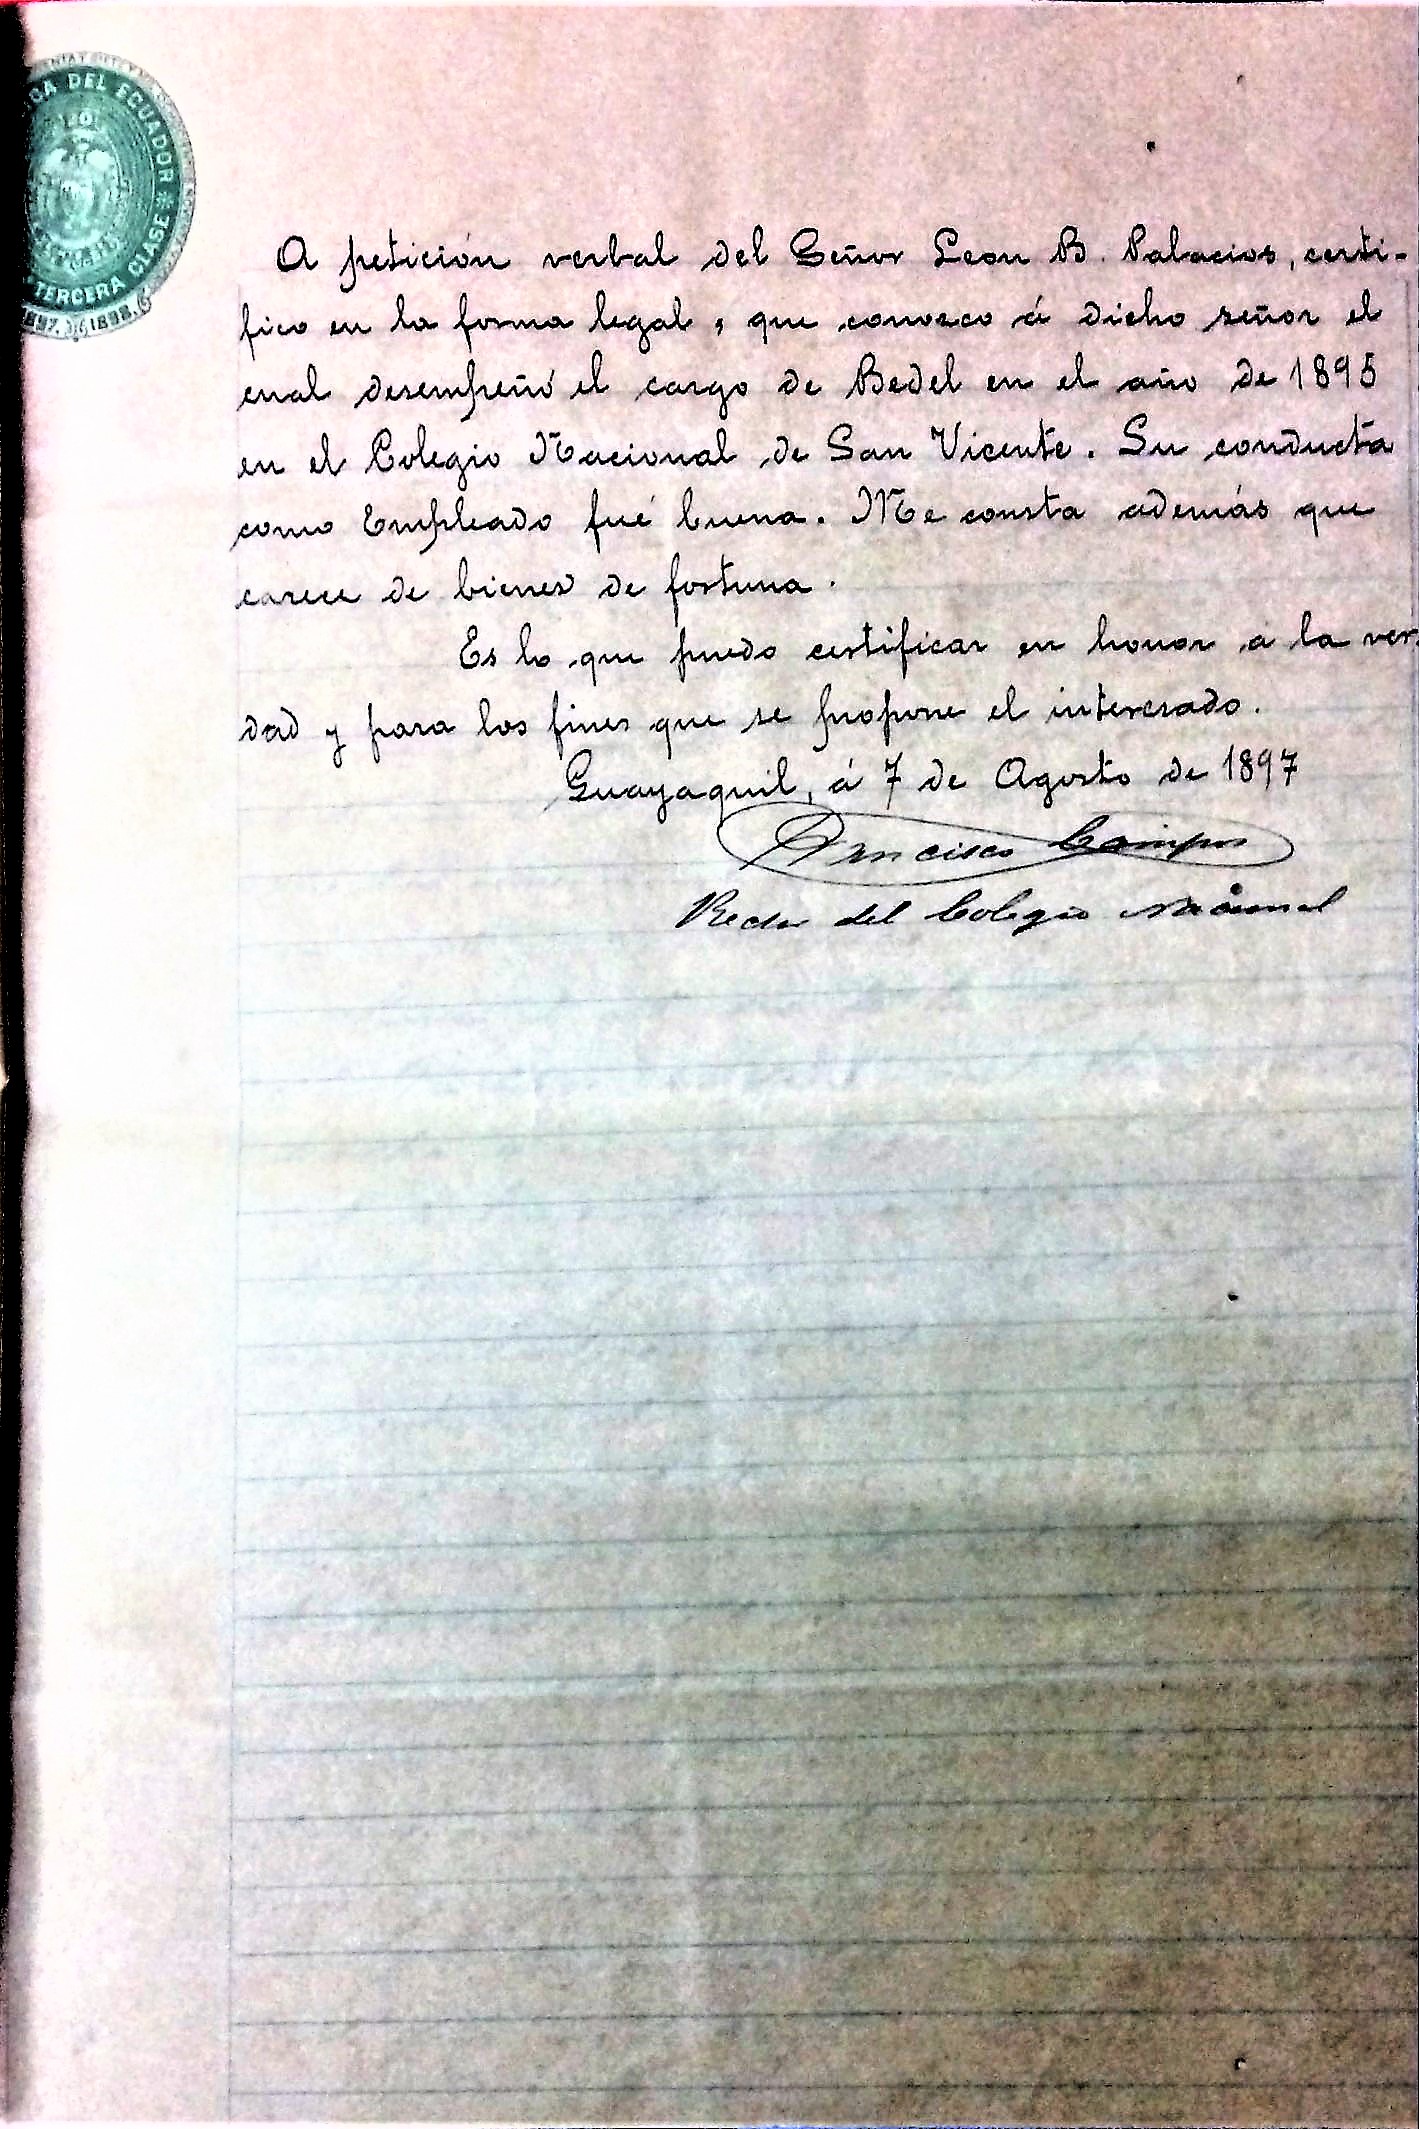 DEL ECUADOR
TERCERA CLASE
1898
A petición verbal del Señor Leon B. Palacios, certi-
fico en la forma legal, que conozco á dicho señor el
cual desempeñó el cargo de Bedel en el año de 1895
en el Colegio Nacional de San Vicente. Su conducta
como Empleado fué buena. Me consta además que
carece de bienes de fortuna.
Es lo que puedo certificar en honor a la ver
dad y para los fines que se propone el interesado.
Guayaquil, á 7 de Agosto de 1897
Francisco Campos
Rector del Colegio Nacional